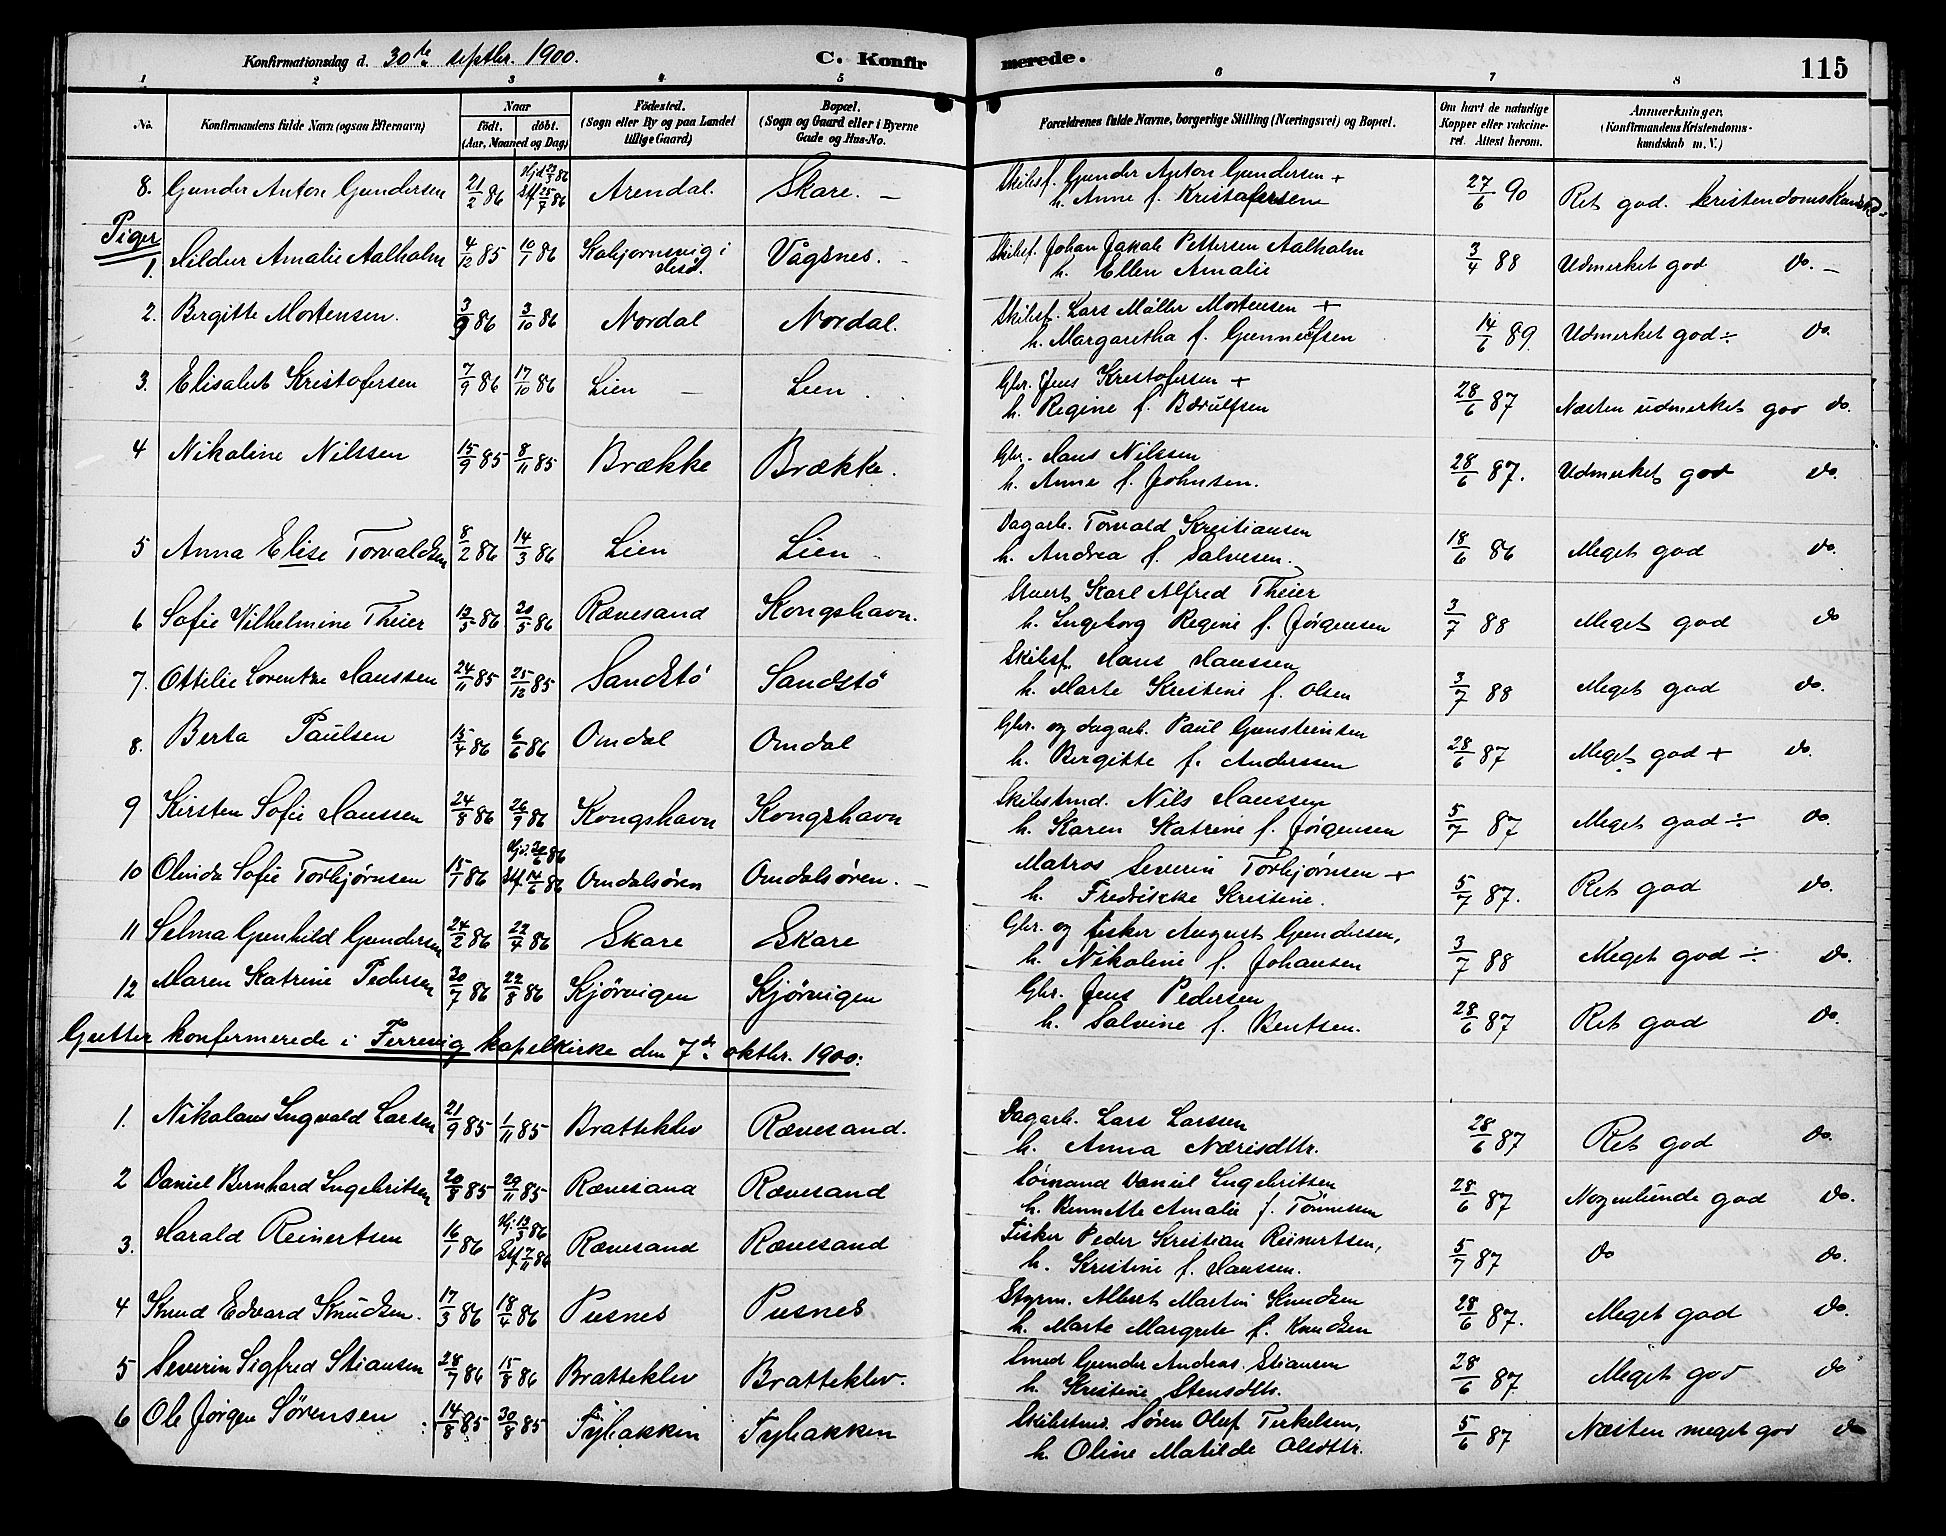 Konfirmationsdag d. 30te septbr. 1900. C. Konfirmerede. 115
1 2 3 4 5 6 7 8
No. Konfirmandens fulde Navn (ogsaa Efternavn) Naar födt. döbt. (Aar, Maaned og Dag) Födested. (Sogn eller By og paa Landet tillige Gaard) Bopæl. (Sogn og Gaard eller i Byerne Gade og Hus-No. Forældrenes fulde Navne, borgerlige Stilling (Næringsvei) og Bopæl. Om havt de naturlige Kopper eller vakcineret. Attest herom. Anmærkninger. (Konfirmandens Kristendomskundskab m. V.)
8. Gunder Anton Gundersen 21/2 86 Hjd 22/3 86 Stf 25/7 86 Arendal. Skare. — Skibsf. Gunder Anton Gundersen +
h. Anne f. Kristofersen 27/6 90 Ret god. kristendomskundsk.
Piger
1. Sildur Amalie Aalholm 4/12 85 10/1 86 Kobjørnsvig i Vågsnes. - Skibsf. Johan Jakob Pettersen Aalholm
h. Ellen Amalie 3/4 88 Udmerket god Do. —
2. Bergitte Mortensen. 3/9 86 3/10 86 Nordal Nordal. Skibsf. Lars Möller Mortensen +
h. Margaretha f. Gunnulfsen 14/6 89. Udmerket god ÷ Do.
3. Elisabet Kristofersen 7/9 86 17/10 86 Lien — Lien . Gbr. Jens Kristofersen +
h. Regine f. Børulfsen 28/6 87 Næsten udmerket god do.
4 Nikoline Nilssen 15/9 85 8/11 85 Brække Brække. Gbr. Hans Nilssen
h. Anne f. Johnsen. 28/6 87. Udmerket god do.
5 Anna Elise Torvaldsen 8/2 86 14/3 86 Lien Lien - Dagarb. Torvald Kristiansen
h. Andrea f. Salvesen. 18/6 86 Meget god do.
6 Sofie Vilhelmine Theier 13/3 86 20/5 86 Rævesand Kongshavn. Stuert Karl Alfred Theier
h. Ingeborg Regine f. Jørgensen 3/7 88 Meget god do
7. Ottelie Lorentze Hanssen 24/11 85 25/12 85 Sandstø Sandstø Skibsf. Hans Hanssen
h. Marte Kristine f. Olsen 3/7 88 Meget god do.
8. Berta Paulsen 15/4 86 6/6 86 Omdal Omdal Gbr. og dagarb. Paul Gunsteinsen
h. Bergitte f. Anderssen 28/6 87 Meget god + do.
9 Kirsten Sofie Hanssen 24/8 86 26/9 86 Kongshavn Kongshavn Skibstmd. Nils Hanssen
h. Karen Katrine f. Jørgensen 5/7 87 Meget god ÷ do.
10 Olinda Sofie Torbjørnsen 15/7 86 Hjd. 20/6 86 Stf. 14/6 86 Omdalsøren Omdalsøren. — Matros Severin Torbjørnsen +
h. Fredrikke Kristine. 5/7 87. Ret god do.
11 Selma Gunhild Gundersen 24/2 86 22/4 86 Skare Skare Gbr. og fisker August Gundersen,
h. Nikoline f. Johansen 3/7 88 Meget god ÷ do.
12 Maren Katrine Pedersen 30/7 86 22/8 86 Kjørvigen Kjørvigen Gbr. Jens Pedersen
h. Salvine f. Bentsen. 28/6 87 Ret god Do.
Gutter konfermerede i Færvig kapelkirke den 7de oktbr. 1900:
1. Nikolaus Ingvald Larsen 21/9 85 1/11 85 Bratteklev Rævesand. Dagarb. Lars Larssen
h. Anna Nærisdttr. 28/6 87 Ret god Do.
2 Daniel Bernhard Ingebritsen 20/8 85 29/11 85 Rævesand Rævesand Sømand Daniel Ingebritsen
h. Bennette Amalie f. Tønnessen 28/6 87 Nogenlunde god Do.
3. Harald Reinertsen 16/1 86 Hj. 13/3 86 Stf. 7/11 86 Rævesand Rævesand Fisker Peder Kristian Reinertsen,
h. Kristine f. Hanssen. 5/7 87 Do Do.
4 Knud Edvard Knudsen. 17/3 86 18/4 86 Pusnes Pusnes Styrm. Albert Martin Knudsen
h. Marte Margrete f. Knudsen 28/6 87. Meget god Do.
5 Severin Sigfred Stiansen 28/7 86 15/8 86 Bratteklev Bratteklev. Smed Gunder Andreas Stiansen
h. Kristine Stensdttr. 28/6 87 Meget god Do
6 Ole Jörgen Sörensen 14/8 85 30/8 85 Fyhakken Fyhakken Skibstmd. Sören Oluf Terkelsen,
h. Oline Matilde Olsdttr. 5/6 87 Næsten meget god do